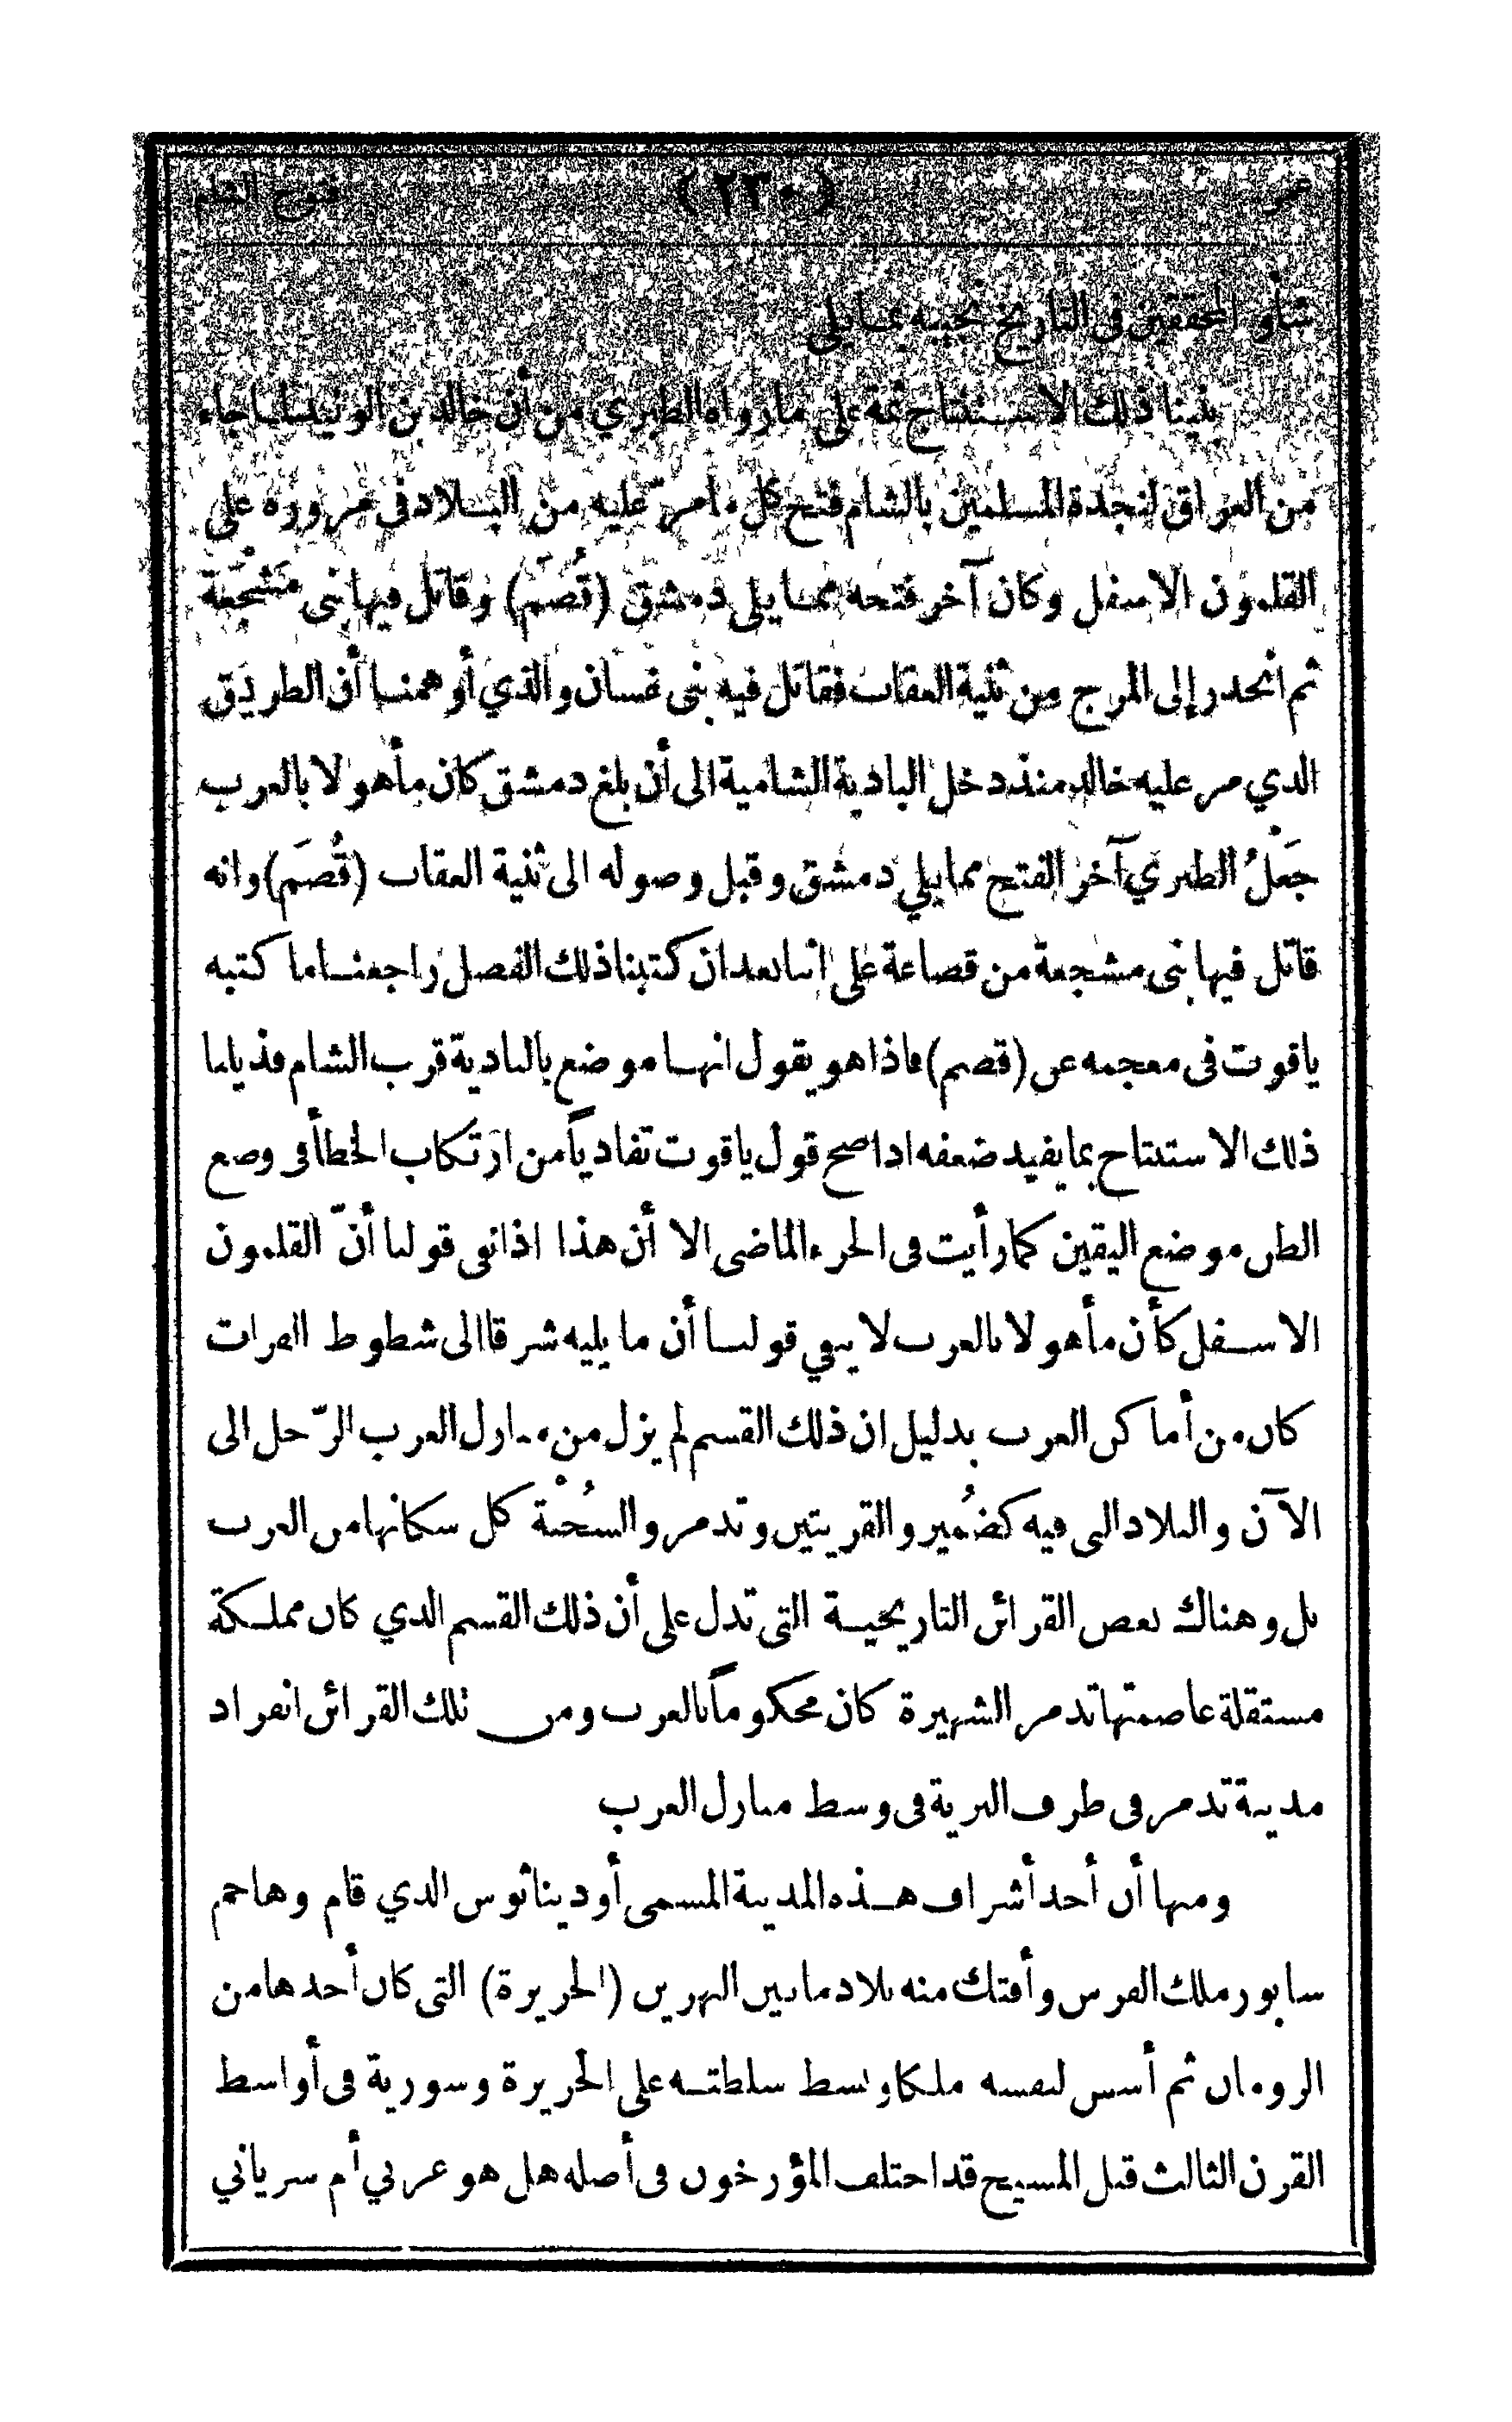 عمر (٢٣٠) فتوح الشام
شأو المحققين في التاريخ نجيبه بما يلي
بنينا ذلك الاستنتاج ثمة على ما رواه الطبري من أن خالد بن الوليد لما جاء
من العراق لنجدة المسلمين بالشام فتح كل ما مرّ عليه من البلاد في مروره على
القلمون الاسفل وكان آخر فتحه مما يلي دمشق (قُصَم) وقاتل فيها بني مشجعة
ثم انحدر إلى المرج من ثنية العقاب فقاتل فيه بني غسان والذي أوهمنا أن الطريق
الذي مر عليه خالد منذ دخل البادية الشامية الى أن بلغ دمشق كان مأهولا بالعرب
جَعْلُ الطبري آخر الفتح مما يلي دمشق وقبل وصوله الى ثنية العقاب (قُصَم) وانه
قاتل فيها بني مشجعة من قضاعة على اننا بعد ان كتبنا ذلك الفصل راجعنا ما كتبه
ياقوت في معجمه عن (قصم) فاذا هو يقول انها موضع بالبادية قرب الشام فذيلنا
ذلك الاستنتاج بما يفيد ضعفه اذا صح قول ياقوت تفادياً من ارتكاب الخطأ في وضع
الظن موضع اليقين كما رأيت في الجزء الماضي الا أن هذا اذا نفى قولنا أنّ القلمون
الاسفل كأن مأهولا بالعرب لا ينفي قولنا أن ما يليه شرقا الى شطوط الفرات
كان من أماكن العرب بدليل ان ذلك القسم لم يزل من منازل العرب الرّحل الى
الآن والبلاد التي فيه كضُمير والقريتين وتدمر والسُخْنة كل سكانها من العرب
بل وهناك بعض القرائن التاريخية التي تدل على أن ذلك القسم الذي كان مملكة
مستقلة عاصمتها تدمر الشهيرة كان محكوماً بالعرب ومن تلك القرائن انفراد
مدينة تدمر في طرف البرية في وسط منازل العرب
ومنها أن أحد أشراف هذه المدينة المسمى أوديناثوس الذي قام وهاجم
سابور ملك الفرس وأفتك منه بلاد ما بين النهرين (الجزيرة) التي كان أحدها من
الرومان ثم أسس لنفسه ملكا وبسط سلطته على الجزيرة وسورية في أواسط
القرن الثالث قبل المسيح قد اختلف المؤرخون في أصله هل هو عربي أم سرياني